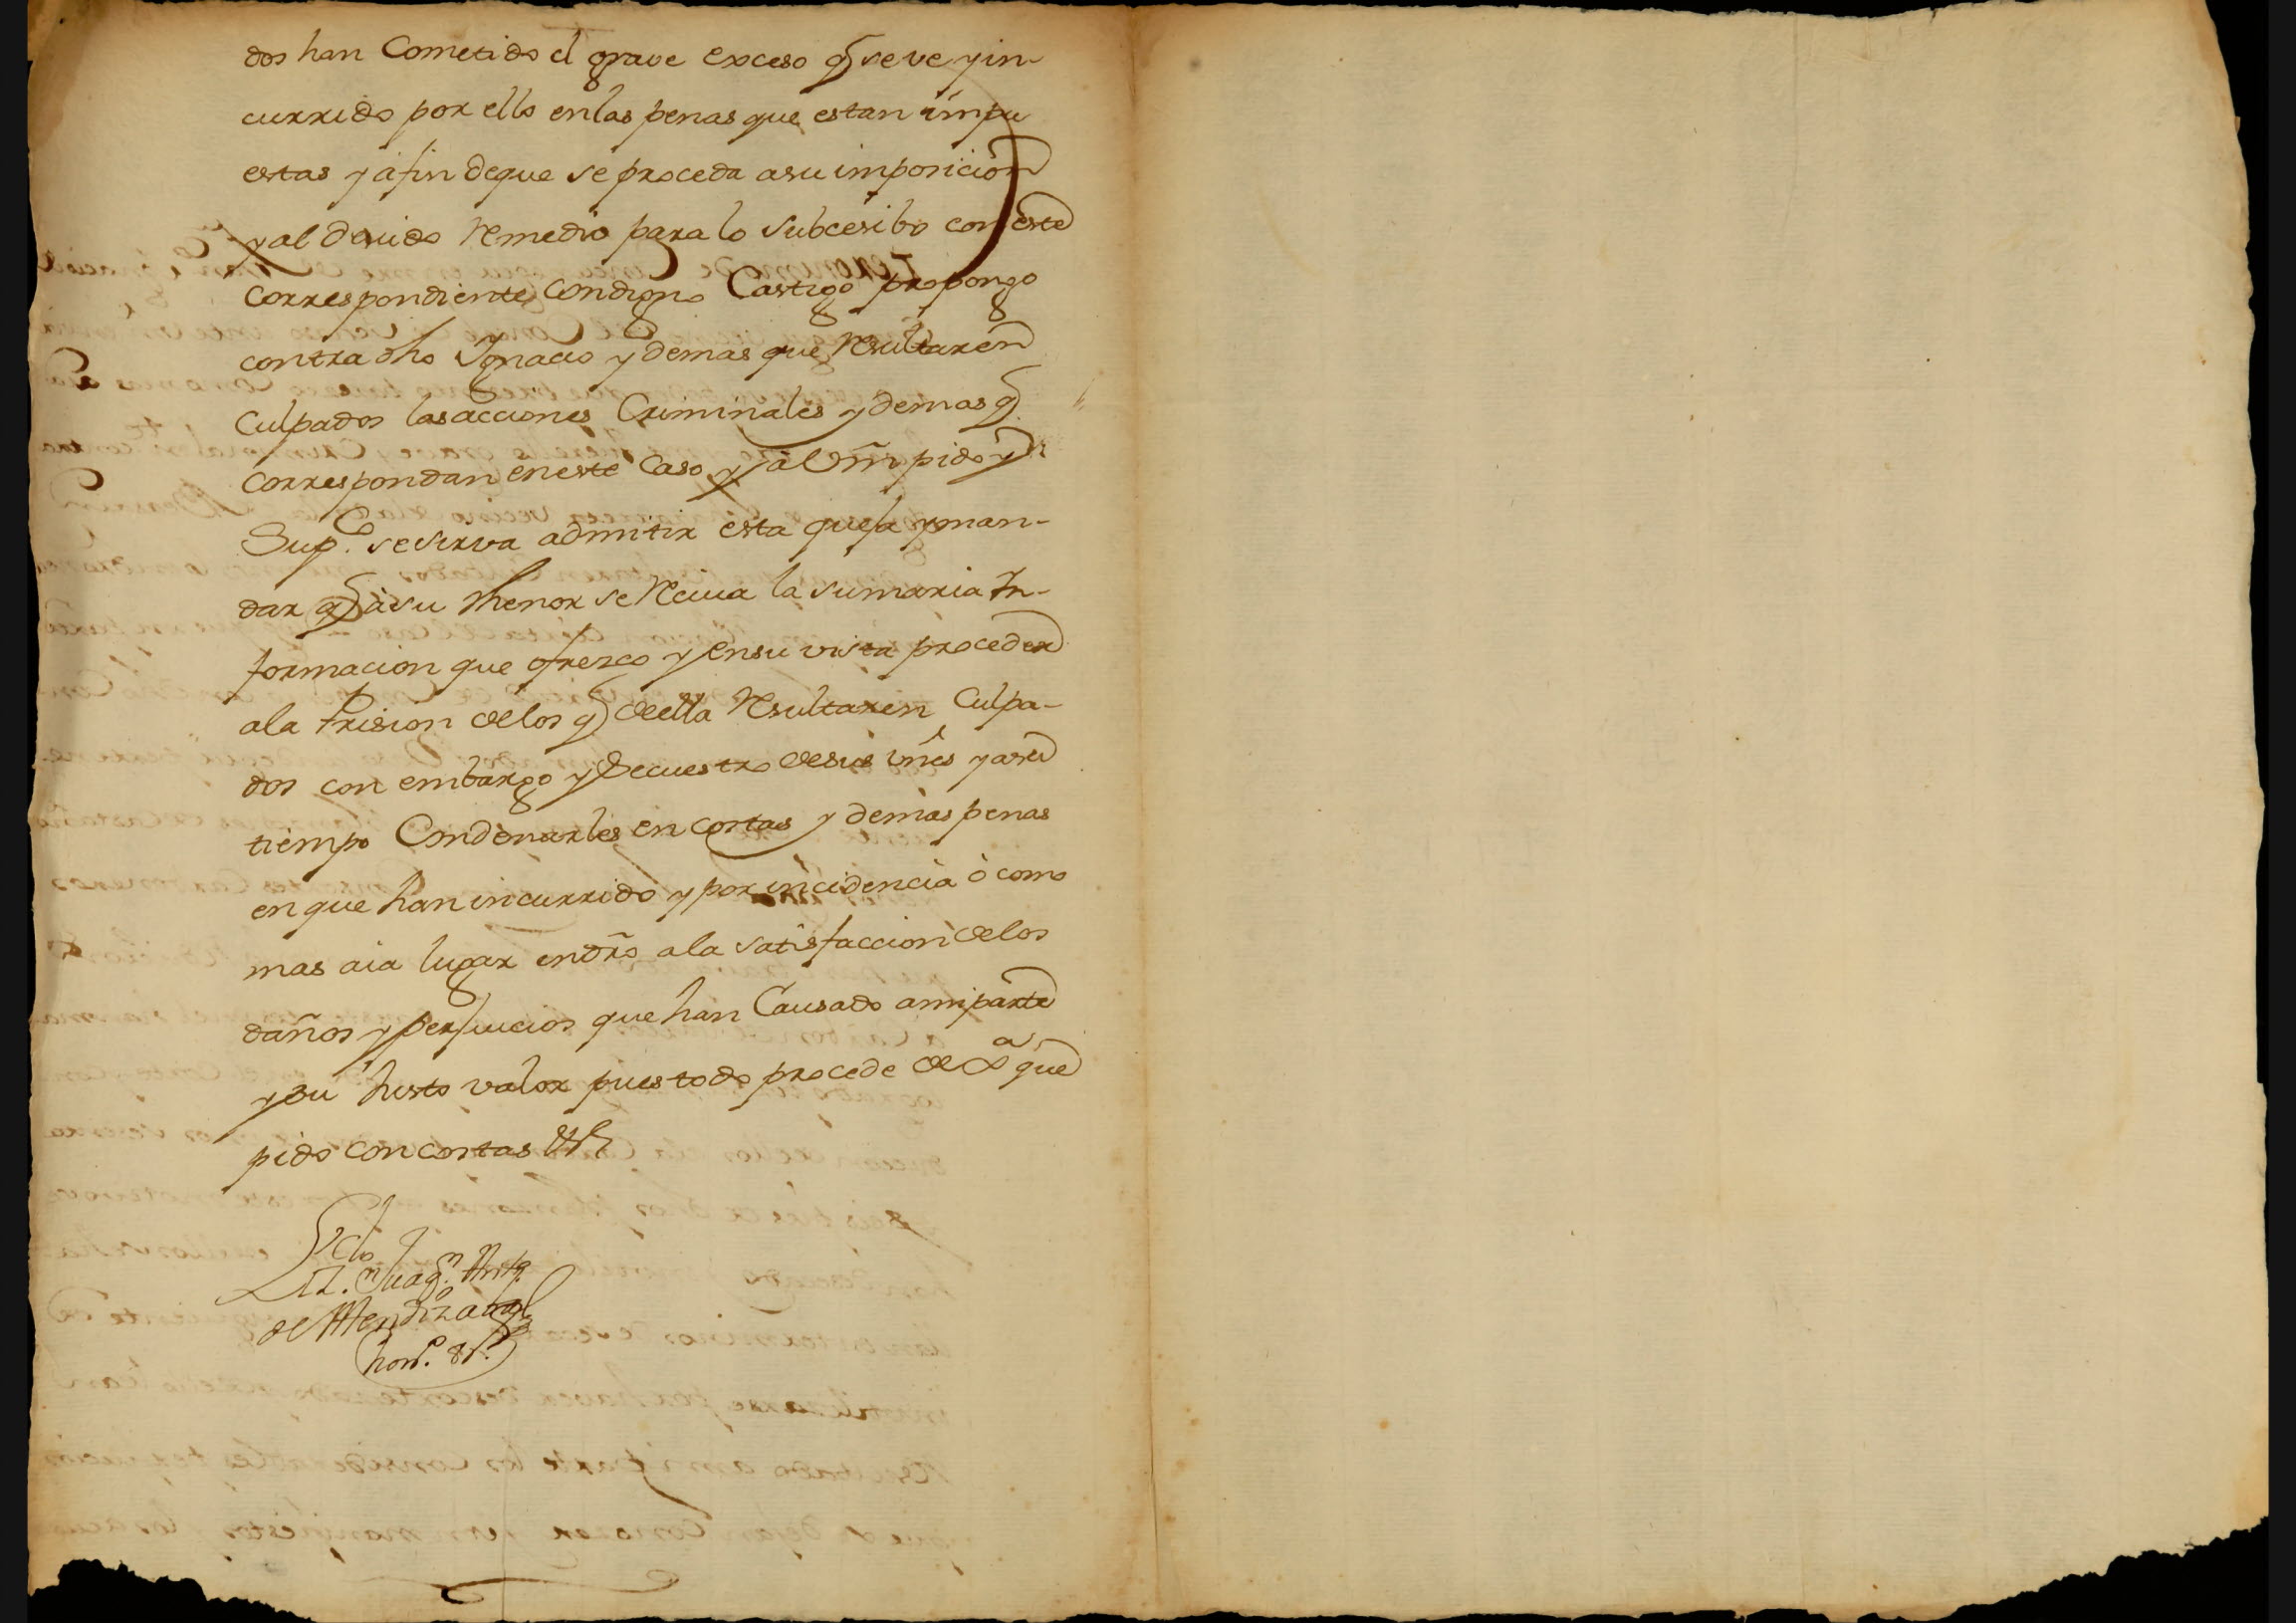 dos han Cometido el grave exceso q̃ se ve y in-
currido por ello en las penas que estan impu
estas y à fin de que se proceda a su imposicion
y al devido remedio para lo subcesibo con este
correspondiente condigno Castigo propongo
contra dho Ygnacio y demas que resultaren
Culpados las acciones Criminales y demas q̃
correspondan en este Caso y à Vm̃ pido y
Sup.co se sirva admitir esta queja y man-
dar q̃ à su thenor se reciua la sumaria In-
formacion que ofrezco y en su vista proceder
a la Prision de los q̃ de ella resultaren Culpa-
dos con embargo y Secuestro de sus vñes y a su
tiempo Condenarles en costas y demas penas
en que han incurrido y por incidencia ò como
mas aia lugar en dr̃o a la satisfaccion de los
daños y perjuicios que han Causado a mi parte
y su justo valor pues todo procede de Jª que
pido con costas &ª
Lizdo
Dn. Juaqn. Anto.
de Mendizabal
hons. 8 rs.